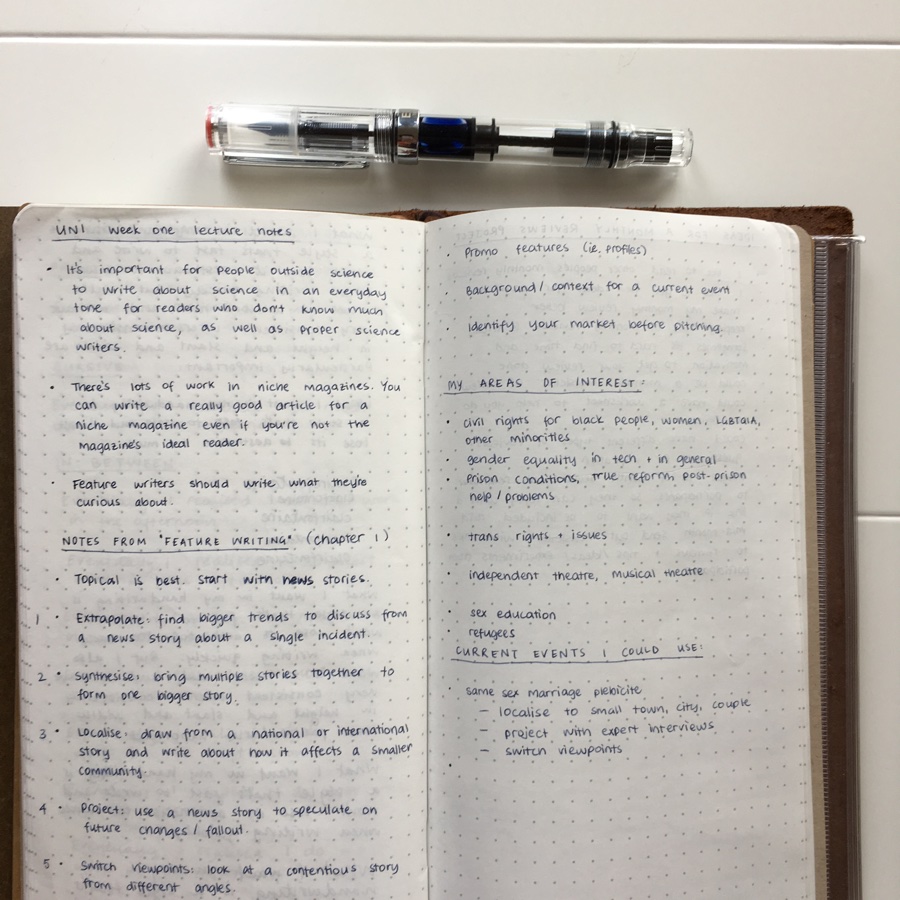 UNI week one lecture notes
• It's important for people outside science
to write about science in an everyday
tone for readers who don't know much
about science, as well as proper science
writers.
• There's lots of work in niche magazines. You
can write a really good article for a
niche magazine even if you're not the
magazine's ideal reader.
• Feature writers should write what they're
curious about.
NOTES FROM "FEATURE WRITING" (chapter 1)
• Topical is best. Start with news stories.
1 • Extrapolate: find bigger trends to discuss from
a news story about a single incident.
2 • Synthesise: bring multiple stories together to
form one bigger story.
3 • Localise: draw from a national or international
story and write about how it affects a smaller
community.
4 • Project: use a news story to speculate on
future changes / fallout.
5 • Switch viewpoints: look at a contentious story
from different angles.
• Promo features (ie. profiles)
• Background / context for a current event
• Identify your market before pitching.
MY AREAS OF INTEREST:
• civil rights for black people, women, LGBTQIA,
other minorities
• gender equality in tech + in general
• prison conditions, true reform, post-prison
help / problems
• trans rights + issues
• independent theatre, musical theatre
• sex education
• refugees
CURRENT EVENTS I COULD USE:
• same sex marriage plebicite
- localise to small town, city, couple
- project with expert interviews
- switch viewpoints
•